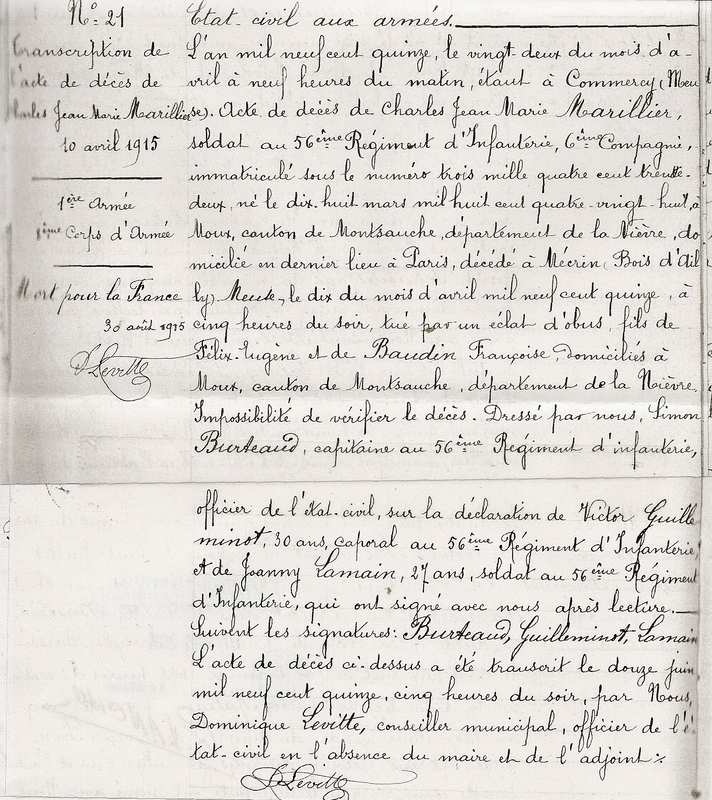 N° 21
Transcription de
l'acte de décès de
Charles Jean Marie Marillier
10 avril 1915
1ère Armée
Corps d'Armée
Mort pour la France
30 août 1915
D Levitte
Etat-civil aux armées.
L'an mil neuf cent quinze, le vingt-deux du mois d'a-
vril à neuf heures du matin, étant à Commercy (Meu
se). Acte de décès de Charles Jean Marie Marillier,
soldat au 56ème Régiment d'Infanterie, 6ème Compagnie,
immatriculé sous le numéro trois mille quatre cent trente-
deux, né le dix-huit mars mil huit cent quatre-vingt-huit, à
Moux, canton de Montsauche, département de la Nièvre, do
micilié en dernier lieu à Paris, décédé à Mécrin (Bois d'Ail
ly) Meuse, le dix du mois d'avril mil neuf cent quinze, à
cinq heures du soir, tué par un éclat d'obus, fils de
Félix-Eugène et de Baudin Françoise, domiciliés à
Moux, canton de Montsauche, département de la Nièvre.
Impossibilité de vérifier le décès. Dressé par nous, Simon
Burteaud, capitaine au 56ème Régiment d'infanterie,
officier de l'état-civil, sur la déclaration de Victor Guille
minot, 30 ans, caporal au 56ème Régiment d'Infanterie,
et de Joanny Lamain, 27 ans, soldat au 56ème Régiment
d'Infanterie, qui ont signé avec nous après lecture.
Suivent les signatures: Burteaud, Guilleminot, Lamain
L'acte de décès ci-dessus a été transcrit le douze juin
mil neuf cent quinze, cinq heures du soir, par Nous,
Dominique Levitte, conseiller municipal, officier de l'é
tat-civil en l'absence du maire et de l'adjoint ·/.
D Levitte